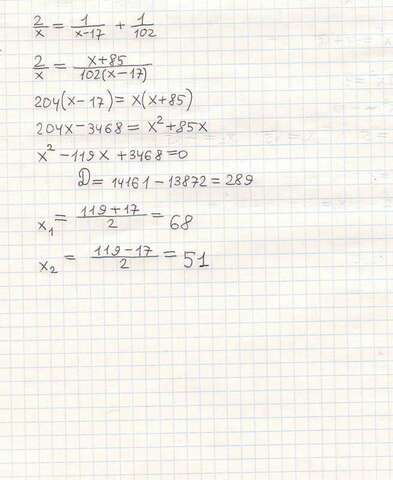 2/x = 1/(x-17) + 1/102
2/x = (x+85)/(102(x-17))
204(x-17) = x(x+85)
204x-3468 = x²+85x
x²-119x+3468=0
D = 14161-13872=289
x₁ = (119+17)/2 = 68
x₂ = (119-17)/2 = 51